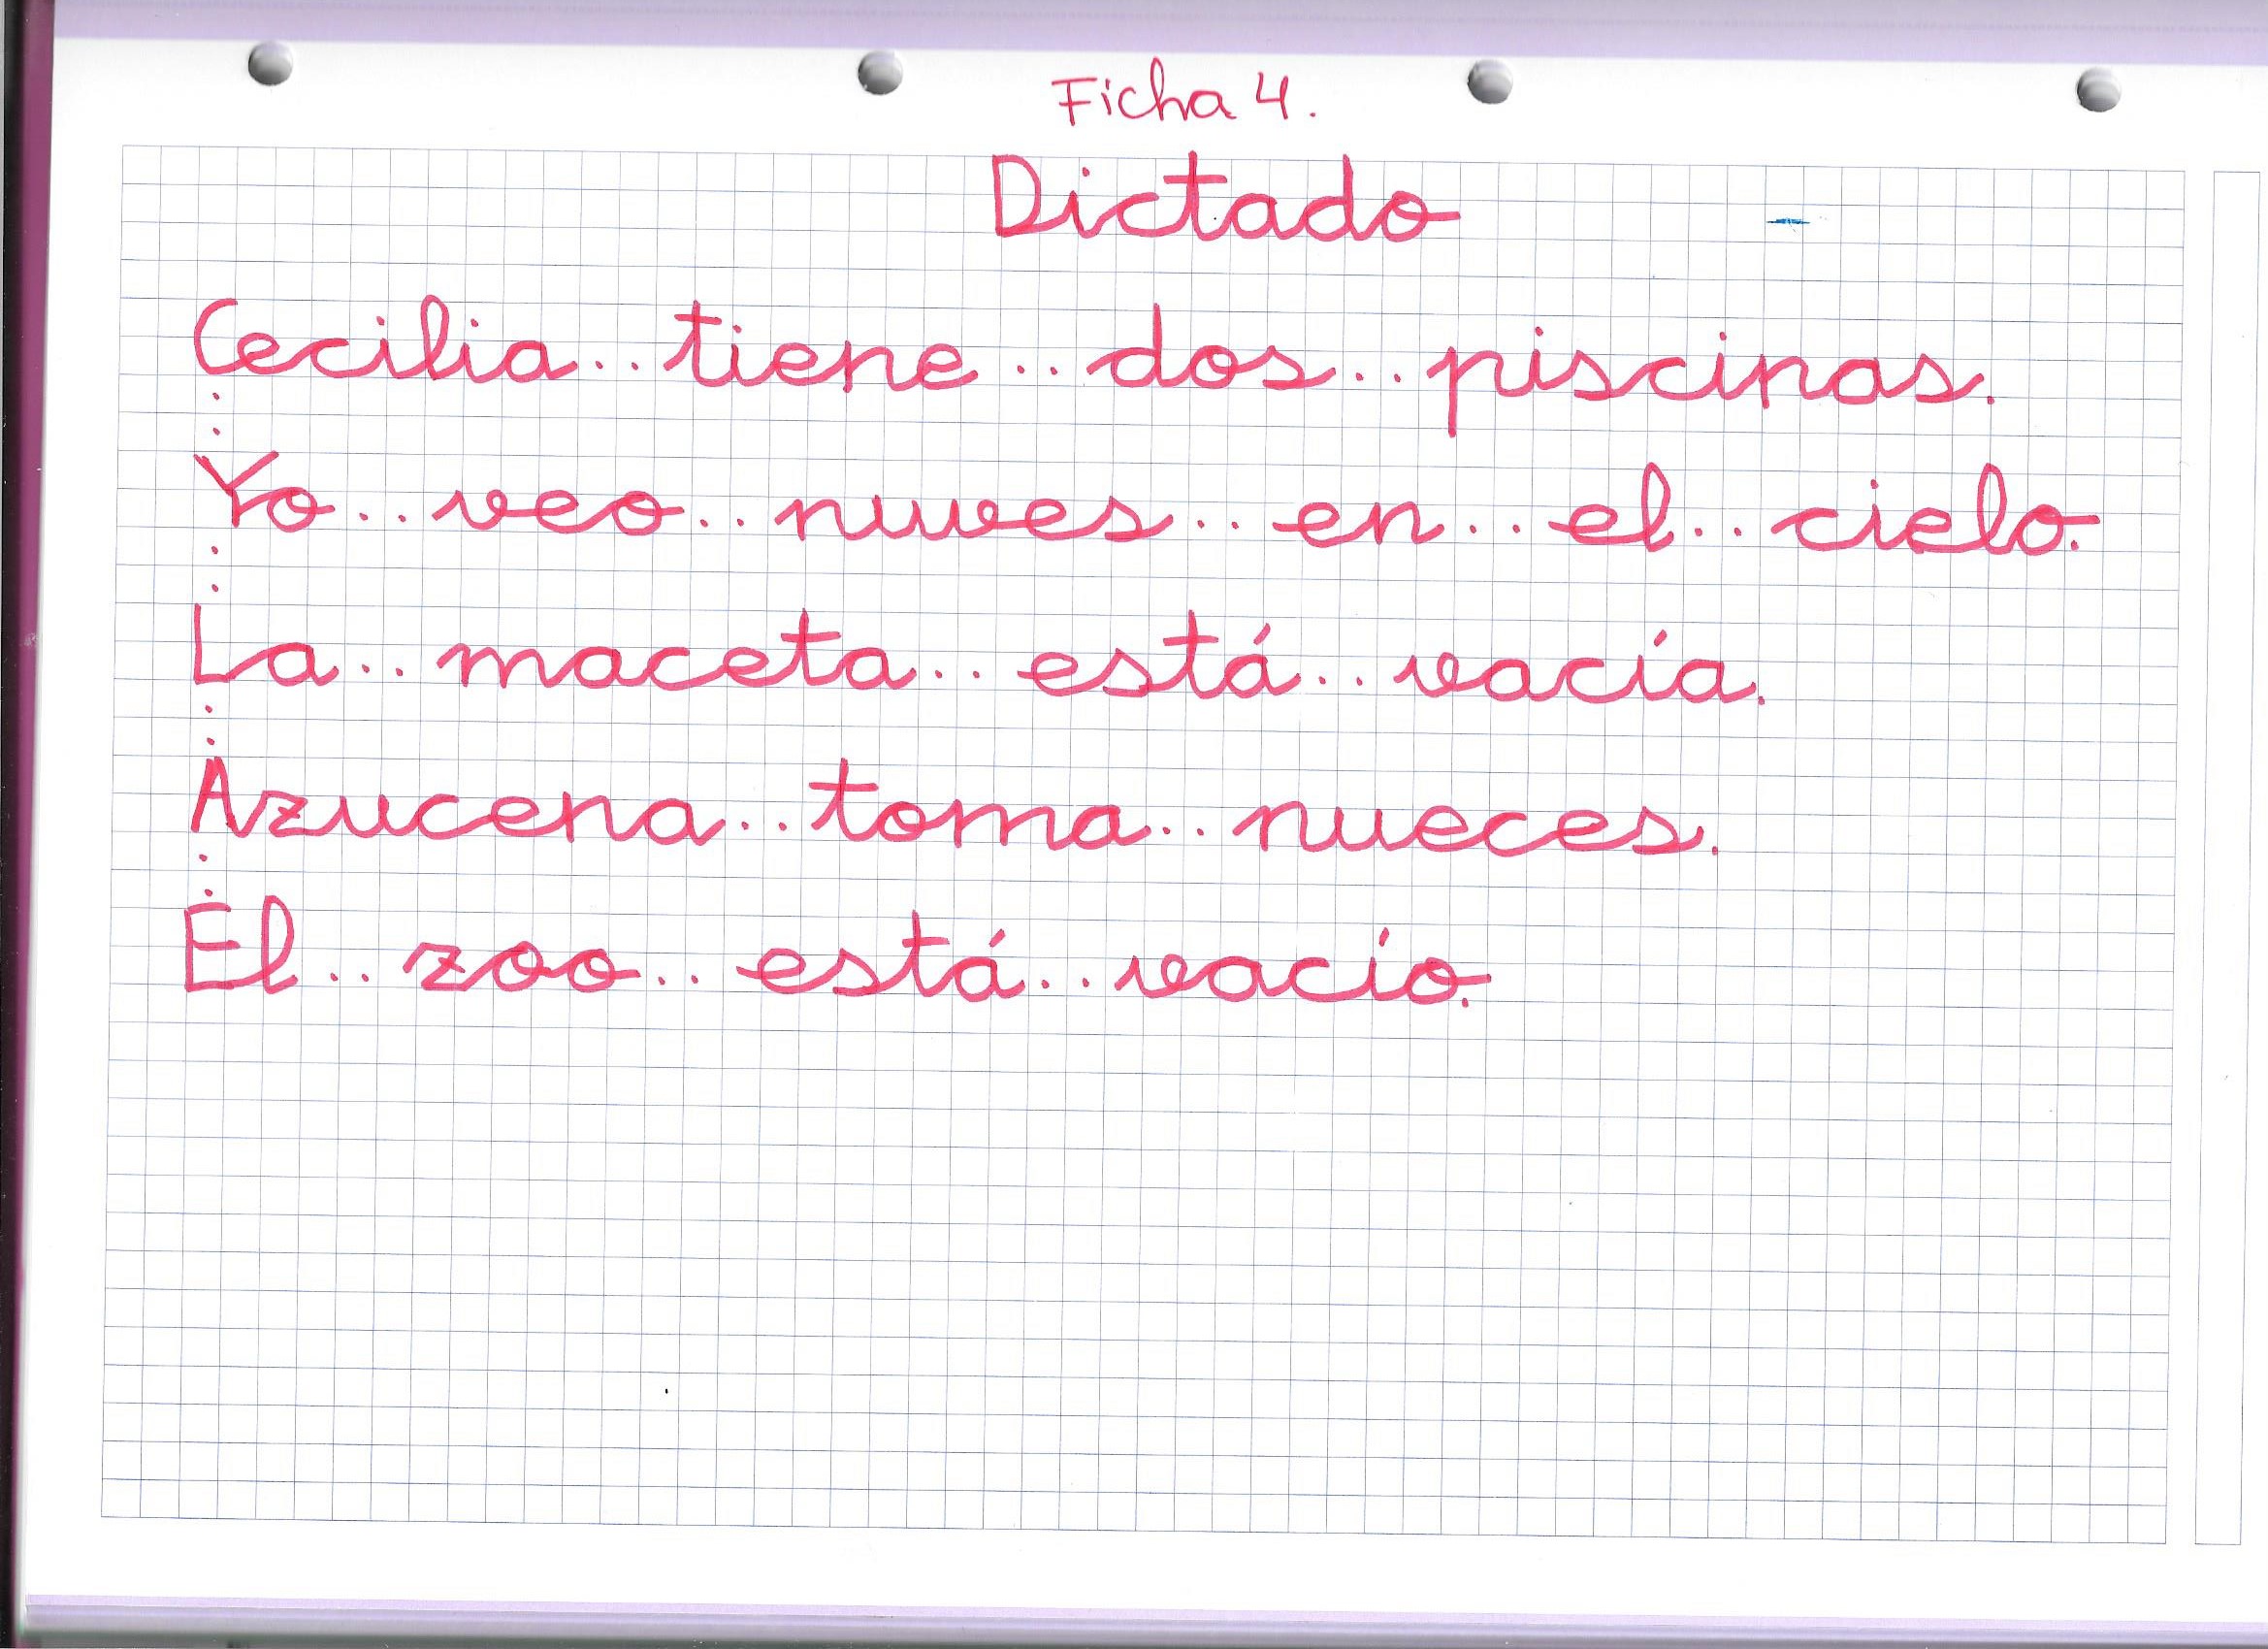 Ficha 4.
Dictado
Cecilia..tiene..dos..piscinas.
Yo..veo..nuves..en..el..cielo.
La..maceta..está..vacía.
Azucena..toma..nueces.
El..zoo..está..vacío.